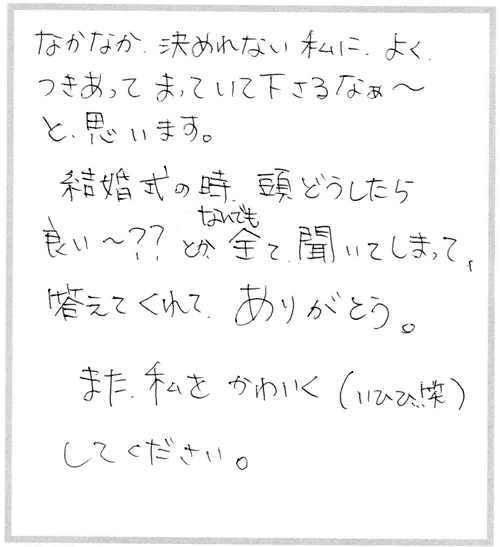 なかなか、決めれない私に、よく、
つきあって まっていて下さるなぁ〜
と、思います。
結婚式の時、頭どうしたら
良い〜?? とか、なんでも全て、聞いてしまって、
答えてくれて、ありがとう。
また、私を かわいく(いひひ笑)
してください。